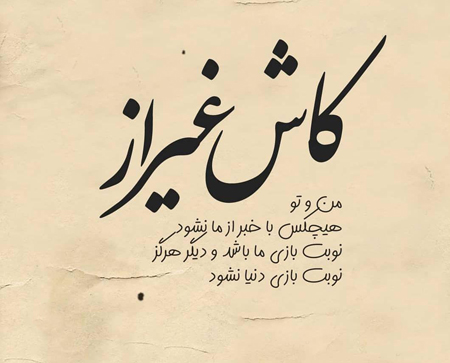 کاش غیر از
من و تو
هیچکس با خبر از ما نشود
نوبت بازی ما باشد و دیگر هرگز
نوبت بازی دنیا نشود